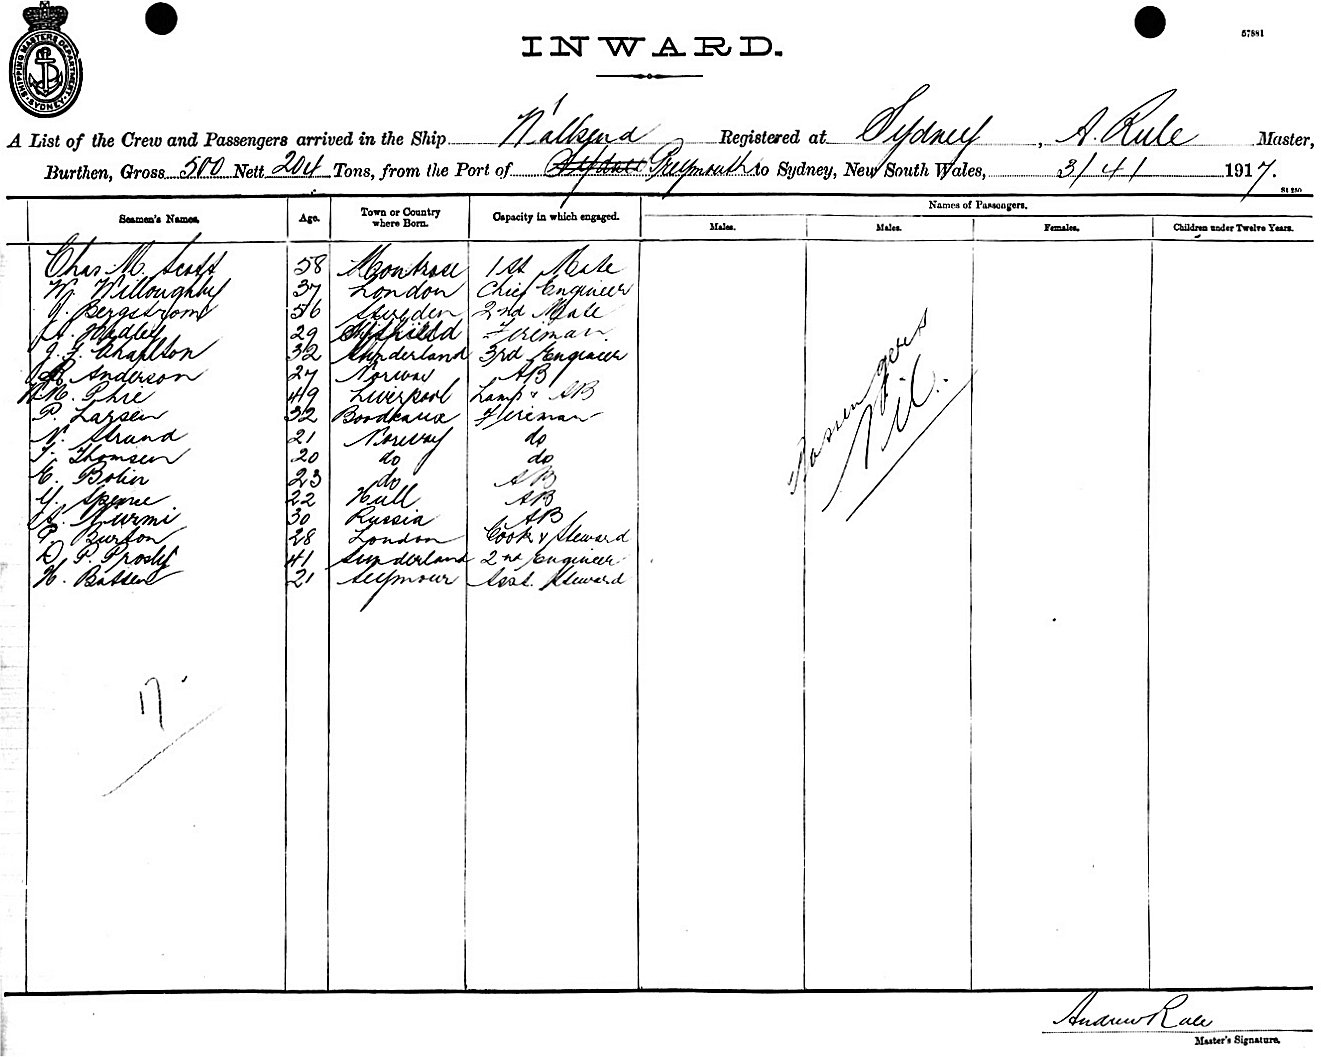 SHIPPING MASTERS DEPARTMENT SYDNEY
57881
INWARD.
A List of the Crew and Passengers arrived in the Ship Wallsend Registered at Sydney, A. Rule Master,
Burthen, Gross 500 Nett 204 Tons, from the Port of Sydney Greymouth to Sydney, New South Wales, 3/41 1917.
Seamen's Names. Age. Town or Country where Born. Capacity in which engaged. Names of Passengers.
Males. Males. Females. Children under Twelve Years.
Chas M. Scott 58 Montrose 1st Mate
W. Willoughby 37 London Chief Engineer
Bergstrom 56 Sweden 2nd Mate
Hedley 29 Fireman
Charlton 32 Sunderland 3rd Engineer
Anderson 27 Norway AB
49 Liverpool Lamps AB
P. Larsen 32 Bordeaux Fireman
N. Strand 21 Norway do
T. Thomsen 20 do do
E. 23 do AB
Spence 22 Hull AB
Nurmi 30 Russia AB
P. Burton 28 London Cook & Steward
D. P. 41 Sunderland 2nd Engineer
H. Batten 21 Seymour Asst. Steward
Passengers
Nil.
17.
Andrew Rule
Master's Signature.